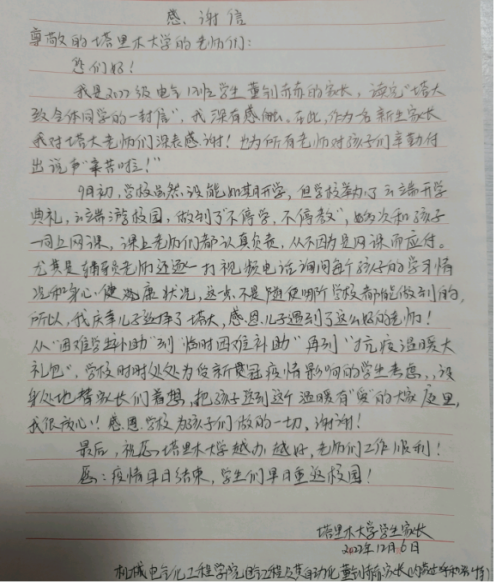 感谢信
尊敬的塔里木大学的老师们:
您们好!
我是2022级电气 班学生董钊 的家长,读完“塔大
致全体同学的一封信”,我深有感触。在此,作为一名新生家长
我对塔大老师们深表感谢!也为所有老师对孩子们辛勤付
出说声“辛苦啦!”
9月初,学校虽然没能如期开学,但学校举办了云端开学
典礼,云端游校园,做到了“不停学,不停教”,每次和孩子
一同上网课,课上老师们都认真负责,从不因为是网课而应付。
尤其是辅导员老师还逐一打视频电话询问每个孩子的学习情
况和身心健康状况,这一点不是随便哪所学校都能做到的,
所以,我庆幸儿子选择了塔大,感恩儿子遇到了这么好的老师!
从“困难学生补助”到“临时困难补助”再到“抗疫温暖大
礼包”,学校时时处处为受新冠疫情影响的学生考虑,设
身处地替家长们着想,把孩子送到这个温暖有“爱”的大家庭里,
我很放心!感恩学校为孩子们做的一切,谢谢!
最后,祝愿塔里木大学越办越好,老师们工作顺利!
愿:疫情早日结束,学生们早日重返校园!
塔里木大学学生家长
2022年12月6日
机械电气化工程学院 电气工程及其自动化 董钊 家长